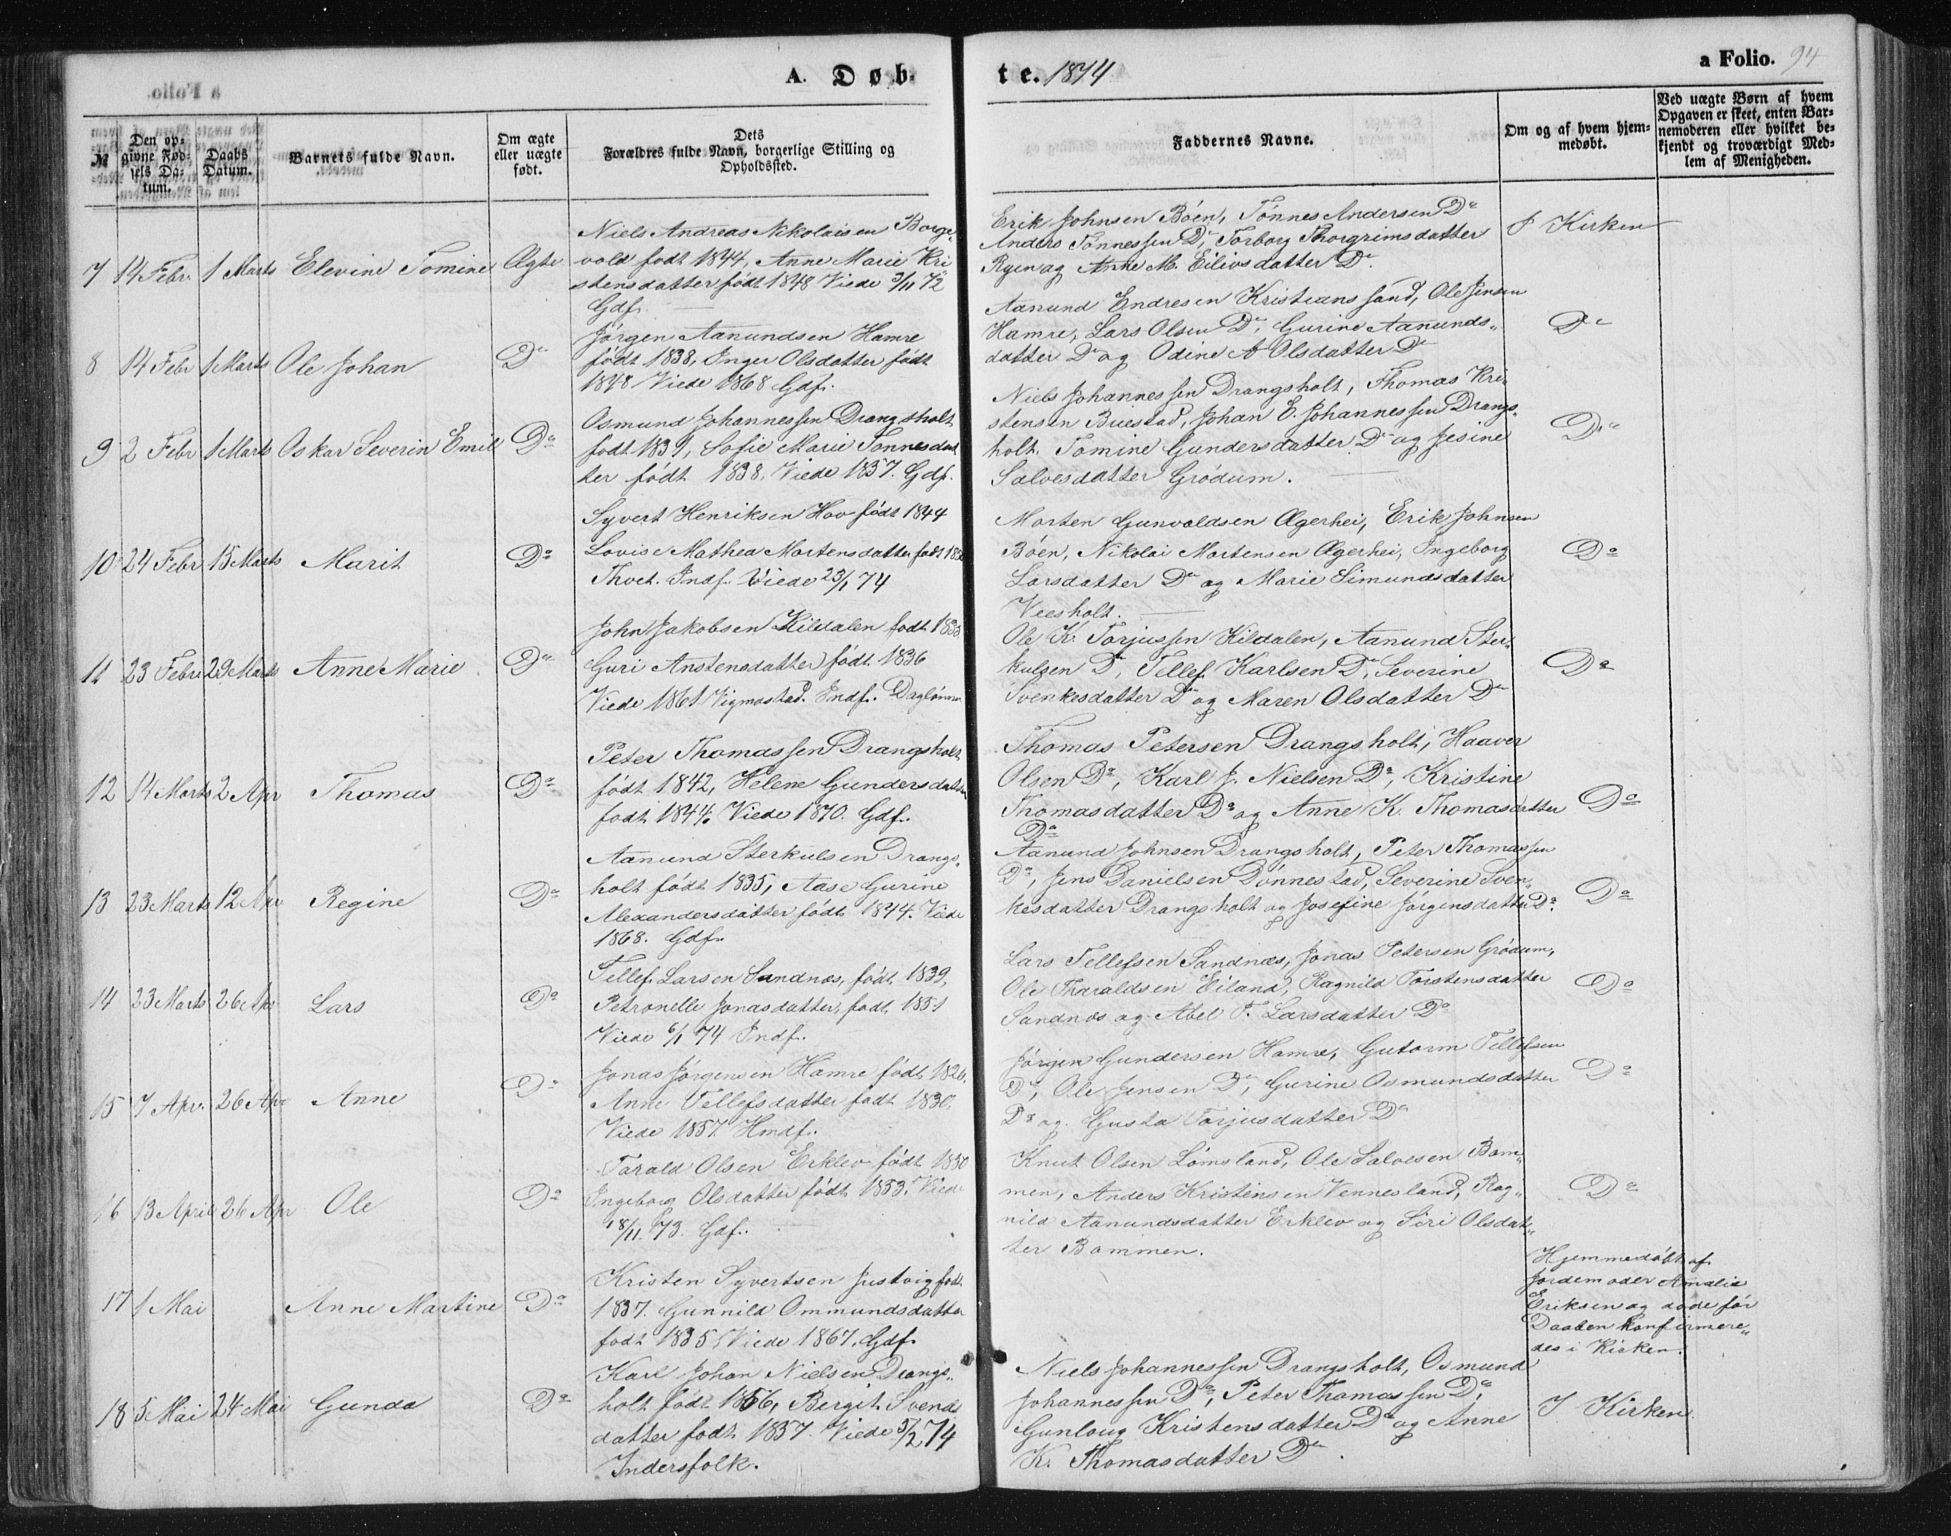 A. Døb-
te. 1874
a Folio. 94
№
Den op-
givne Fød-
sels Da-
tum.
Daabs
Datum.
Barnets fulde Navn.
Om ægte
eller uægte
født.
Dets
Forældres fulde Navn, borgerlige Stilling og
Opholdssted.
Faddernes Navne.
Om og af hvem hjem-
medøbt.
Ved uægte Børn af hvem
Opgaven er skeet, enten Bar-
nemoderen eller hvilket be-
kjendt og troværdigt Med-
lem af Menigheden.
7 14 Febr. 1 Marts Elevine Tomine Ægte
Niels Andreas Nikolaisen Borge-
vold født 1844, Anne Marie Kri
stensdatter født 1848 Viede 3/11 72
Gdf.
Erik Johnsen Bøen, Tønnes Andersen Do
Anders Tønnessen Do, Torborg Thorgrimsdatter
Ryen og Anne M. Eilivsdatter Do.
I Kirken
8 14 Febr 1 Marts Ole Johan Do
Jørgen Aanundsen Hamre
født 1838, Inger Olsdatter født
1848 Viede 1868 Gdf.
Aanund Endresen Kristianssand, Ole Jensen
Hamre, Lars Olsen Do, Gurine Aanunds-
datter Do og Odine A Olsdatter Do
Do
9 2 Febr 1 Marts Oskar Severin Emil Do
Osmund Johannessen Drangsholt
født 1839, Sofie Marie Tønnesdat
ter født 1838, Viede 1857. Gdf.
Niels Johannessen Drangsholt, Thomas Kri-
stensen Buestad, Johan E. Johannessen Drangs-
holt. Tomine Gundersdatter Do og Jesine
Salvesdatter Grødum.
Do
10 24 Febr 15 Marts Marit Do
Syvert Henriksen Hov født 1844
Lovise Mathea Mortensdatter født
Thvet. Indf. Viede 23/1 74
Morten Gunvaldsen Ægerhei, Erik Johnsen
Bøen, Nikolai Mortensen Ægerhei, Ingeborg
Larsdatter Do og Marie Simundsdatter
Veesholt.
Do
11 23 Febr 29 Marts Anne Marie Do
John Jakobsen Kildalen født 1833
Guri Anstensdatter født 1836
Viede 1861 Vigmostad. Indf. Daglønner
Ole K. Torjussen Kildalen, Aanund Ster-
kulsen Do, Tellef Karlsen Do, Severine
Svenkesdatter Do og Maren Olsdatter Do
Do
12 14 Marts 2 Apr Thomas Do
Peter Thomassen Drangsholt
født 1842, Helene Gundersdatter
født 1844. Viede 1870. Gdf.
Thomas Petersen Drangsholt, Haaver
Olsen Do, Karl J. Nielsen Do, Kristine
Thomasdatter Do og Anne K. Thomasdatter
Do
Do
13 23 Marts 12 Apr Regine Do
Aanund Sterkulsen Drangs-
holt født 1835, Aase Gurine
Alexandersdatter født 1844. Viede
1868. Gdf.
Aanund Johnsen Drangsholt, Peter Thomassen
Do, Jens Danielsen Dønnestad, Severine Sven-
kesdatter Drangsholt og Josefine Jørgensdatter Do.
Do
14 23 Marts 26 Apr Lars Do
Tellef Larsen Sandnæs, født 1839,
Petronelle Jonasdatter, født 1851
Viede 6/1 74 Indf.
Lars Tellefsen Sandnæs, Jonas Petersen Grødum,
Ole Tharaldsen Eiland, Ragnild Torstensdatter
Sandnæs og Abel T. Larsdatter Do
Do
15 7 Apr. 26 Apr Anne Do
Jonas Jørgensen Hamre født 1826,
Anne Tellefsdatter født 1830.
Viede 1857. Hmdf.
Jørgen Gundersen Hamre, Gutorm Tellefsen
Do, Ole Jensen Do, Gurine Osmundsdatter
Do og Gusta Torjusdatter Do
Do
16 13 April 26 Apr Ole Do
Tarald Olsen Erklev født 1830
Ingeborg Olsdatter født 1853. Viede
18/11 73. Gdf.
Knut Olsen Lømsland, Ole Salvesen Bom-
men, Anders Kristensen Vennesland, Rag-
nild Aanundsdatter Erklev og Siri Olsdat-
ter Bommen.
Do
17 1 Mai Anne Martine Do
Kristen Syvertsen Justvig født
1837. Gunnild Ommundsdatter
født 1835, Viede 1867. Gdf.
Hjemmedøbt af
Jordemoder Amalie
Eriksen og døde før
Daaben konfirmere-
des i Kirken.
18 5 Mai 24 Mai Gunda Do
Karl Johan Nielsen Drangs-
holt født 1856, Bergit Svends
datter født 1857. Viede 5/2 74
Indersfolk.
Niels Johannessen Drangsholt, Osmund
Johannessen Do, Peter Thomassen Do,
Gunloug Kristensdatter Do og Anne
K. Thomasdatter Do.
I Kirken